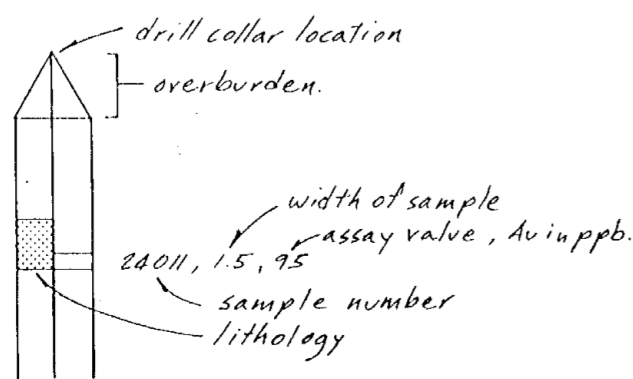 drill collar location
overburden.
width of sample
assay value, Au in ppb.
24011, 1.5, 95
sample number
lithology